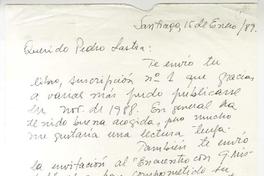 Santiago, 15 de Enero /89.
Querido Pedro Lastra:
Te envío tu
libro, suscripción nº 1 que gracias
a varias más pudo publicarse
en nov. de 1988. En general ha
tenido buena acogida, pero mucho
me gustaría una lectura tuya.
También te envío
la invitación al "Encuentro con